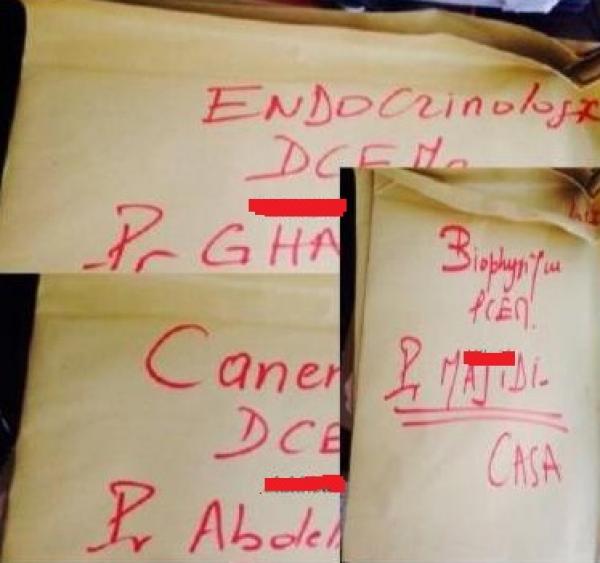 ENDOCrinologx
Pr GHA
Caner
DCE
Pr Abdel
Biophysique
PCEM.
Pr MAJIDI
CASA